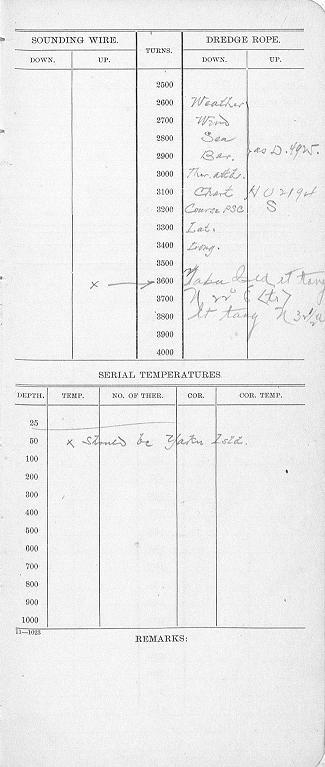 SOUNDING WIRE. TURNS. DREDGE ROPE.
DOWN. UP. DOWN. UP.
2500
2600 Weather
2700 Wind
2800 Sea
2900 Bar. as D. 4925.
3000 Ther. att.
3100 Chart H O 2194
3200 Course PSC S
3300 Lat.
3400 Long.
3500
x → 3600 tang
3700 N 22° E
3800 lt tang N 32½
3900
4000
SERIAL TEMPERATURES
DEPTH. TEMP. NO. OF THER. COR. COR. TEMP.
25
50 x should be Isld.
100
200
300
400
500
600
700
800
900
1000
11—1023
REMARKS: